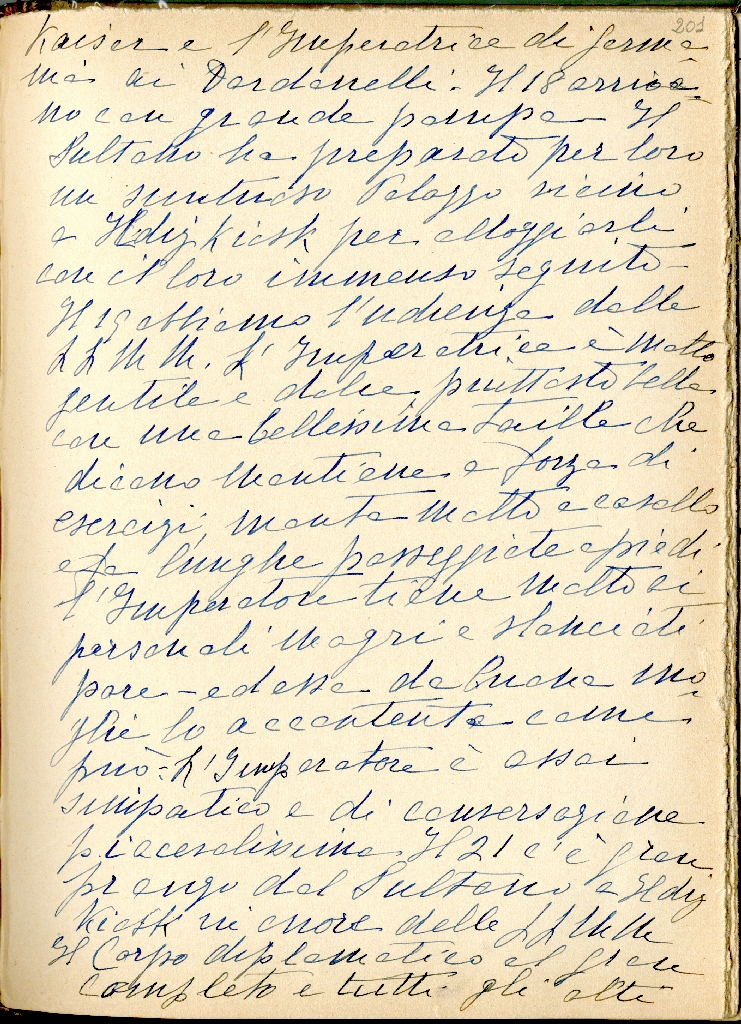 201
Kaiser e l'Imperatrice di Germa-
nia ai Dardanelli. Il 18 arriva-
no con grande pompa - Il
Sultano ha preparato per loro
un suntuoso Palazzo vicino
a Ildiz Kiosk per alloggiarli
con il loro immenso seguito -
Il 19 abbiamo l'udienza dalle
LL MM. L'Imperatrice è molto
gentile e dolce, piuttosto bella
con una bellissima taille che
dicono mantiene a forza di
esercizi, monta molto a cavallo
e fa lunghe passeggiate a piedi.
l'Imperatore tiene molto ai
personali magri e slanciati
pare - ed essa da buona mo-
glie lo accontenta come
può - L'Imperatore è assai
simpatico e di conversazione
piacevolissima Il 21 c'è gran
pranzo dal Sultano a Ildiz
Kiosk in onore delle LL MM
Il Corpo diplomatico al gran
completo e tutti gli alti